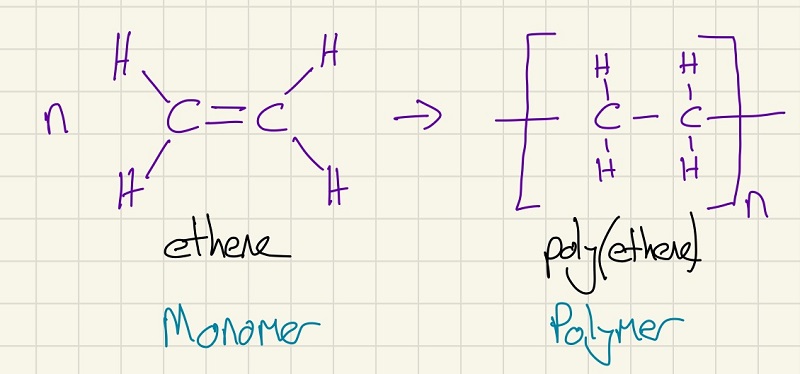 H H H H
n C = C → C - C
H H H H n
ethene poly(ethene)
Monomer Polymer